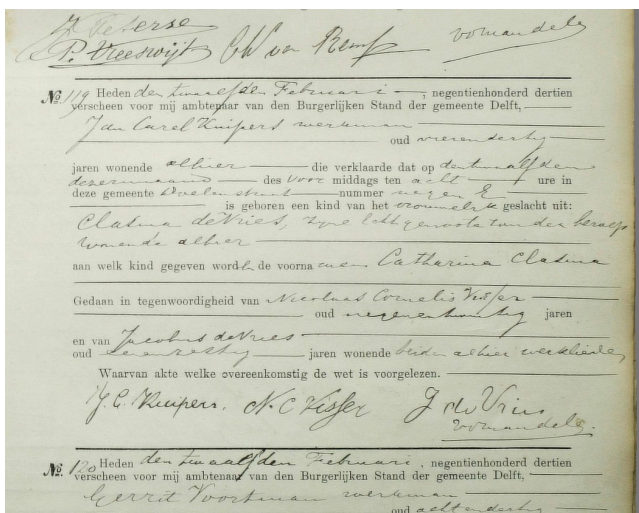 J. Peterse
P. Vreeswijk
No. 119 Heden den twaalfden Februari, negentienhonderd dertien
verscheen voor mij ambtenaar van den Burgerlijken Stand der gemeente Delft,
Jan Carel Kuipers werkman
oud vierendertig
jaren wonende alhier die verklaarde dat op den twaalfden
dezer maand des voor middags ten acht ure in
deze gemeente Doelenstraat nummer negen E
is geboren een kind van het vrouwelijk geslacht uit:
Clasina de Vries, zijne Echtgenoote van der beroep
wonende alhier
aan welk kind gegeven wordt de voornamen Catharina Clasina
Gedaan in tegenwoordigheid van Nicolaas Cornelis Visser
oud jaren
en van Jacobus de Vries
oud jaren wonende beiden alhier werklieden
Waarvan akte welke overeenkomstig de wet is voorgelezen.
J. C. Kuipers. N. C. Visser J de Vries
No. 120 Heden den twaalfden Februari, negentienhonderd dertien
verscheen voor mij ambtenaar van den Burgerlijken Stand der gemeente Delft,
Gerrit Voortman werkman
oud achtendertig